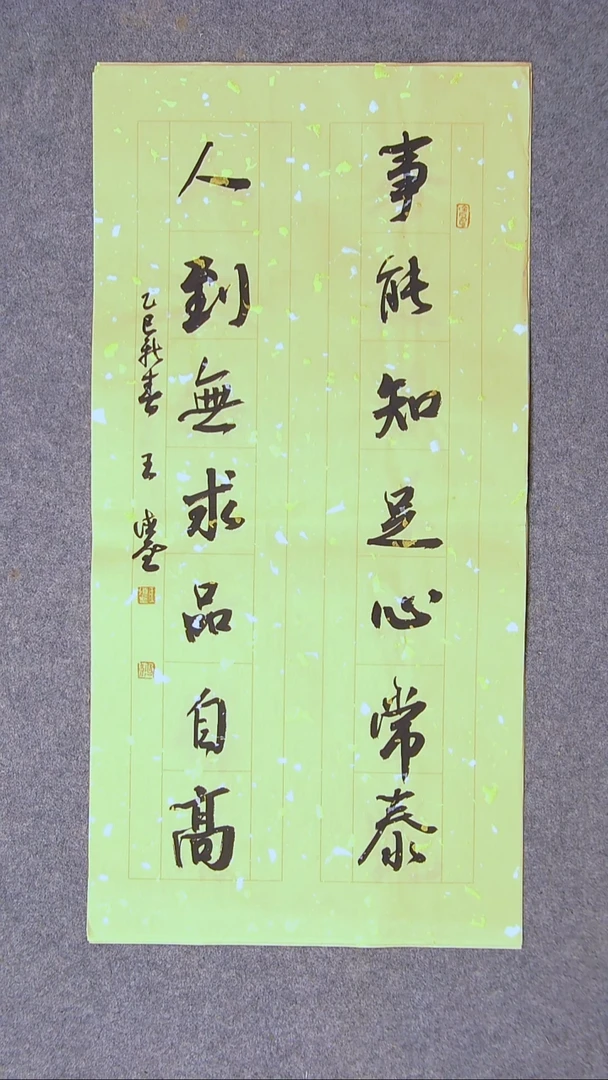 事能知足心常泰
人到無求品自高
乙巳新春 王